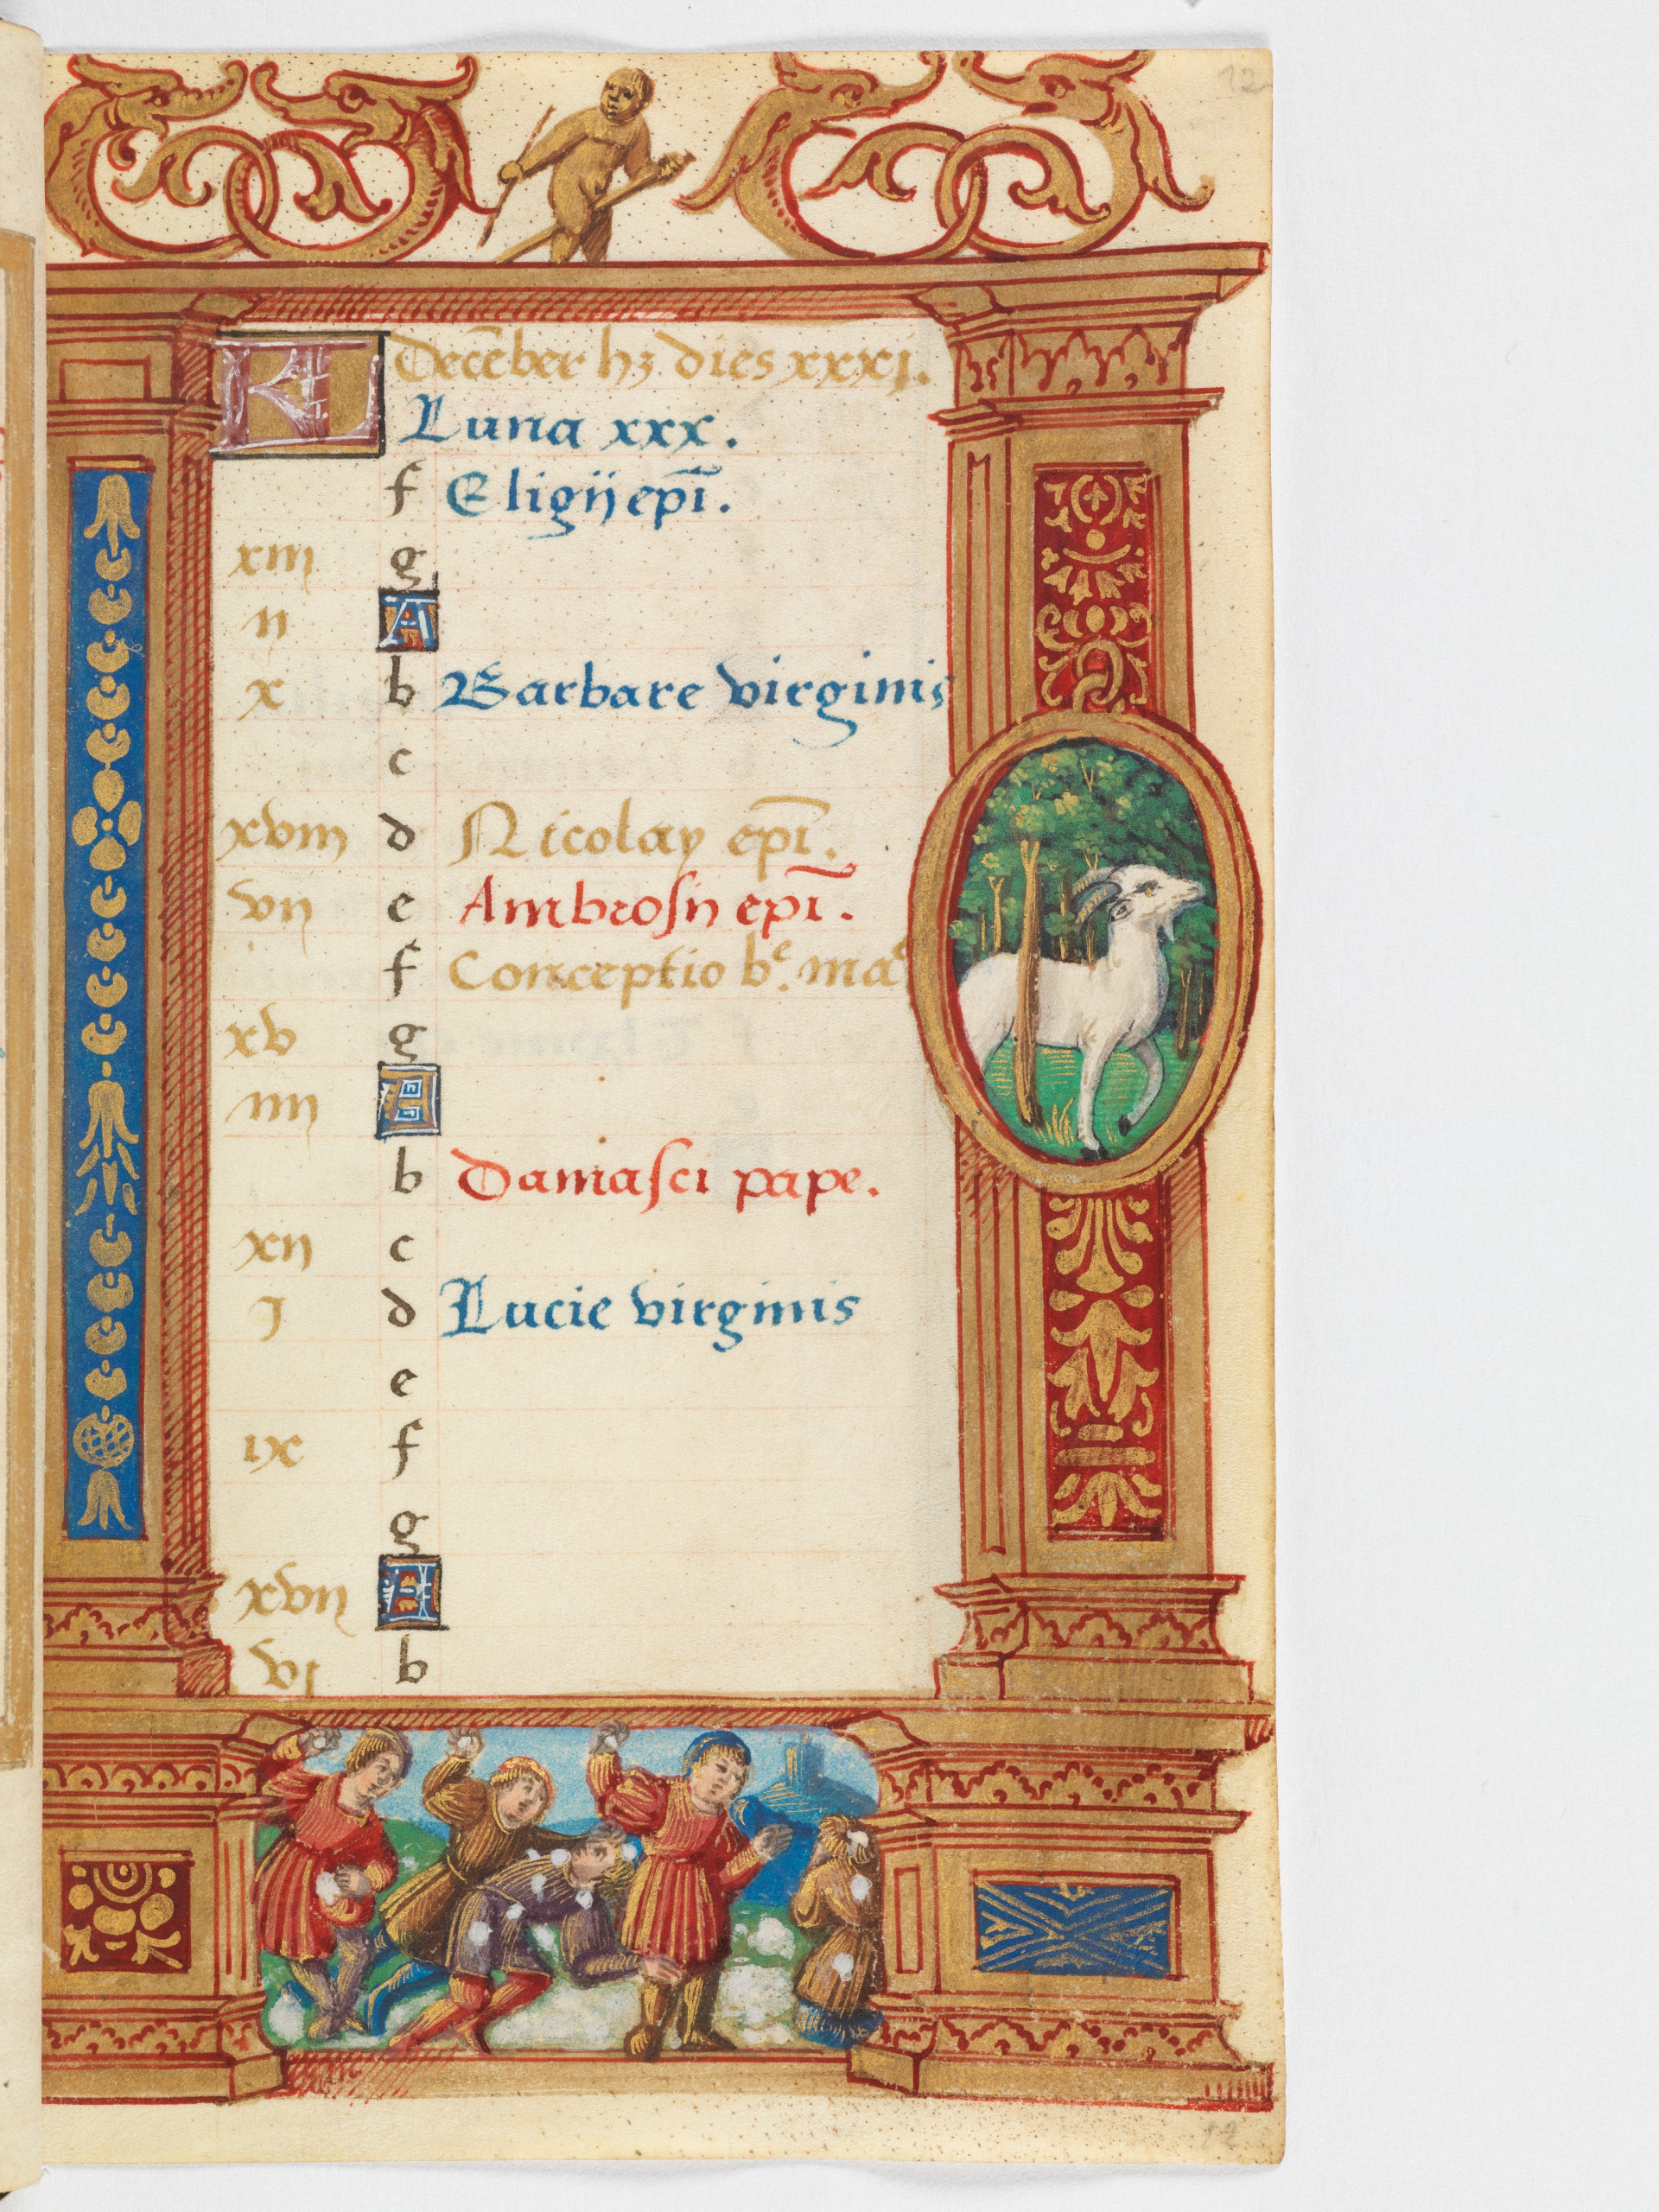 12
KL Decēber hꝫ dies xxxj.
Luna xxx.
f Eligij epī.
xiij g
ij A
x b Barbare virginis
c
xviij d Nicolay epī.
vij e Ambrosij epī.
f Conceptio bᵉ. maᵉ
xv g
iiij A
b Damasci pape.
xij c
j d Lucie virginis
e
ix f
g
xvij A
vj b
12